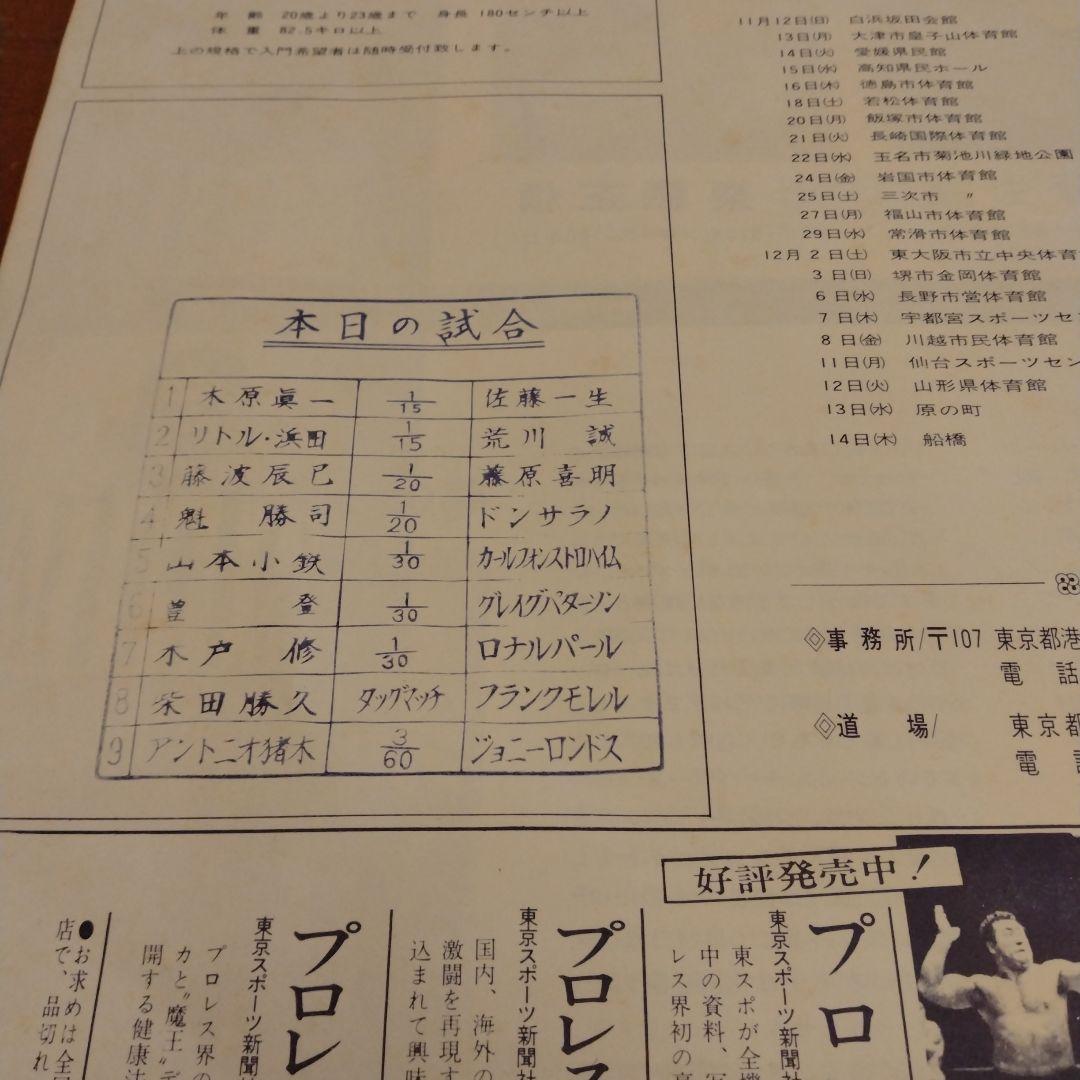 年 齢 20歳より23歳まで 身長 180センチ以上
体 重 82.5キロ以上
上の規格で入門希望者は随時受付致します。
本日の試合
1 木原眞一 1/15 佐藤一生
2 リトル・浜田 1/15 荒川 誠
3 藤波辰巳 1/20 藤原喜明
4 魁 勝司 1/20 ドンサラノ
5 山本小鉄 1/30 カールフォンストロハイム
6 豊 登 1/30 グレイグパターソン
7 木戸 修 1/30 ロナルパール
8 柴田勝久 タッグマッチ フランクモレル
9 アントニオ猪木 3/60 ジョニーロンドス
11月12日(日) 白浜坂田会館
13日(月) 大津市皇子山体育館
14日(火) 愛媛県民館
15日(水) 高知県民ホール
16日(木) 徳島市体育館
18日(土) 若松体育館
20日(月) 飯塚市体育館
21日(火) 長崎国際体育館
22日(水) 玉名市菊池川緑地公園
24日(金) 岩国市体育館
25日(土) 三次市 〃
27日(月) 福山市体育館
29日(水) 常滑市体育館
12月2日(土) 東大阪市立中央体育
3日(日) 堺市金岡体育館
6日(水) 長野市営体育館
7日(木) 宇都宮スポーツセ
8日(金) 川越市民体育館
11日(月) 仙台スポーツセン
12日(火) 山形県体育館
13日(水) 原の町
14日(木) 船橋
◎事務所/〒107 東京都港
電話
◎道 場/ 東京都
電話
好評発売中!
プロ
東京スポーツ新聞社
東スポが全機
中の資料、写
レス界初の豪
プロレス
東京スポーツ新聞社
国内、海外の
激闘を再現す
込まれて興味
プロレ
東京スポーツ新聞
プロレス界の
カと"魔王"デ
開する健康法
●お求めは全国
店で、品切れ